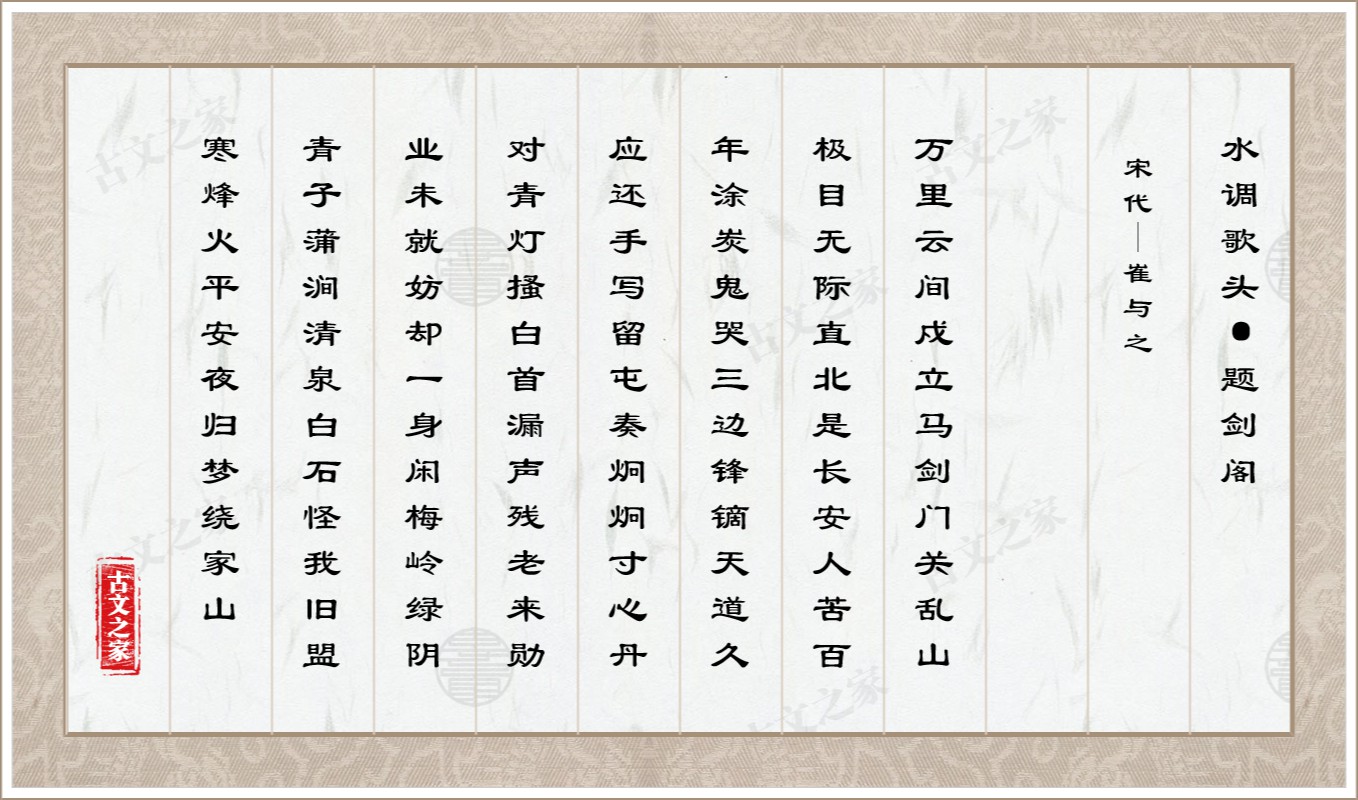 水调歌头●题剑阁
宋代—崔与之
万里云间戍立马剑门关乱山
极目无际直北是长安人苦百
年涂炭鬼哭三边锋镝天道久
应还手写留屯奏炯炯寸心丹
对青灯搔白首漏声残老来勋
业未就妨却一身闲梅岭绿阴
青子蒲涧清泉白石怪我旧盟
寒烽火平安夜归梦绕家山
古文之家
古文之家
古文之家
古文之家
古文之家
古文之家
古文之家